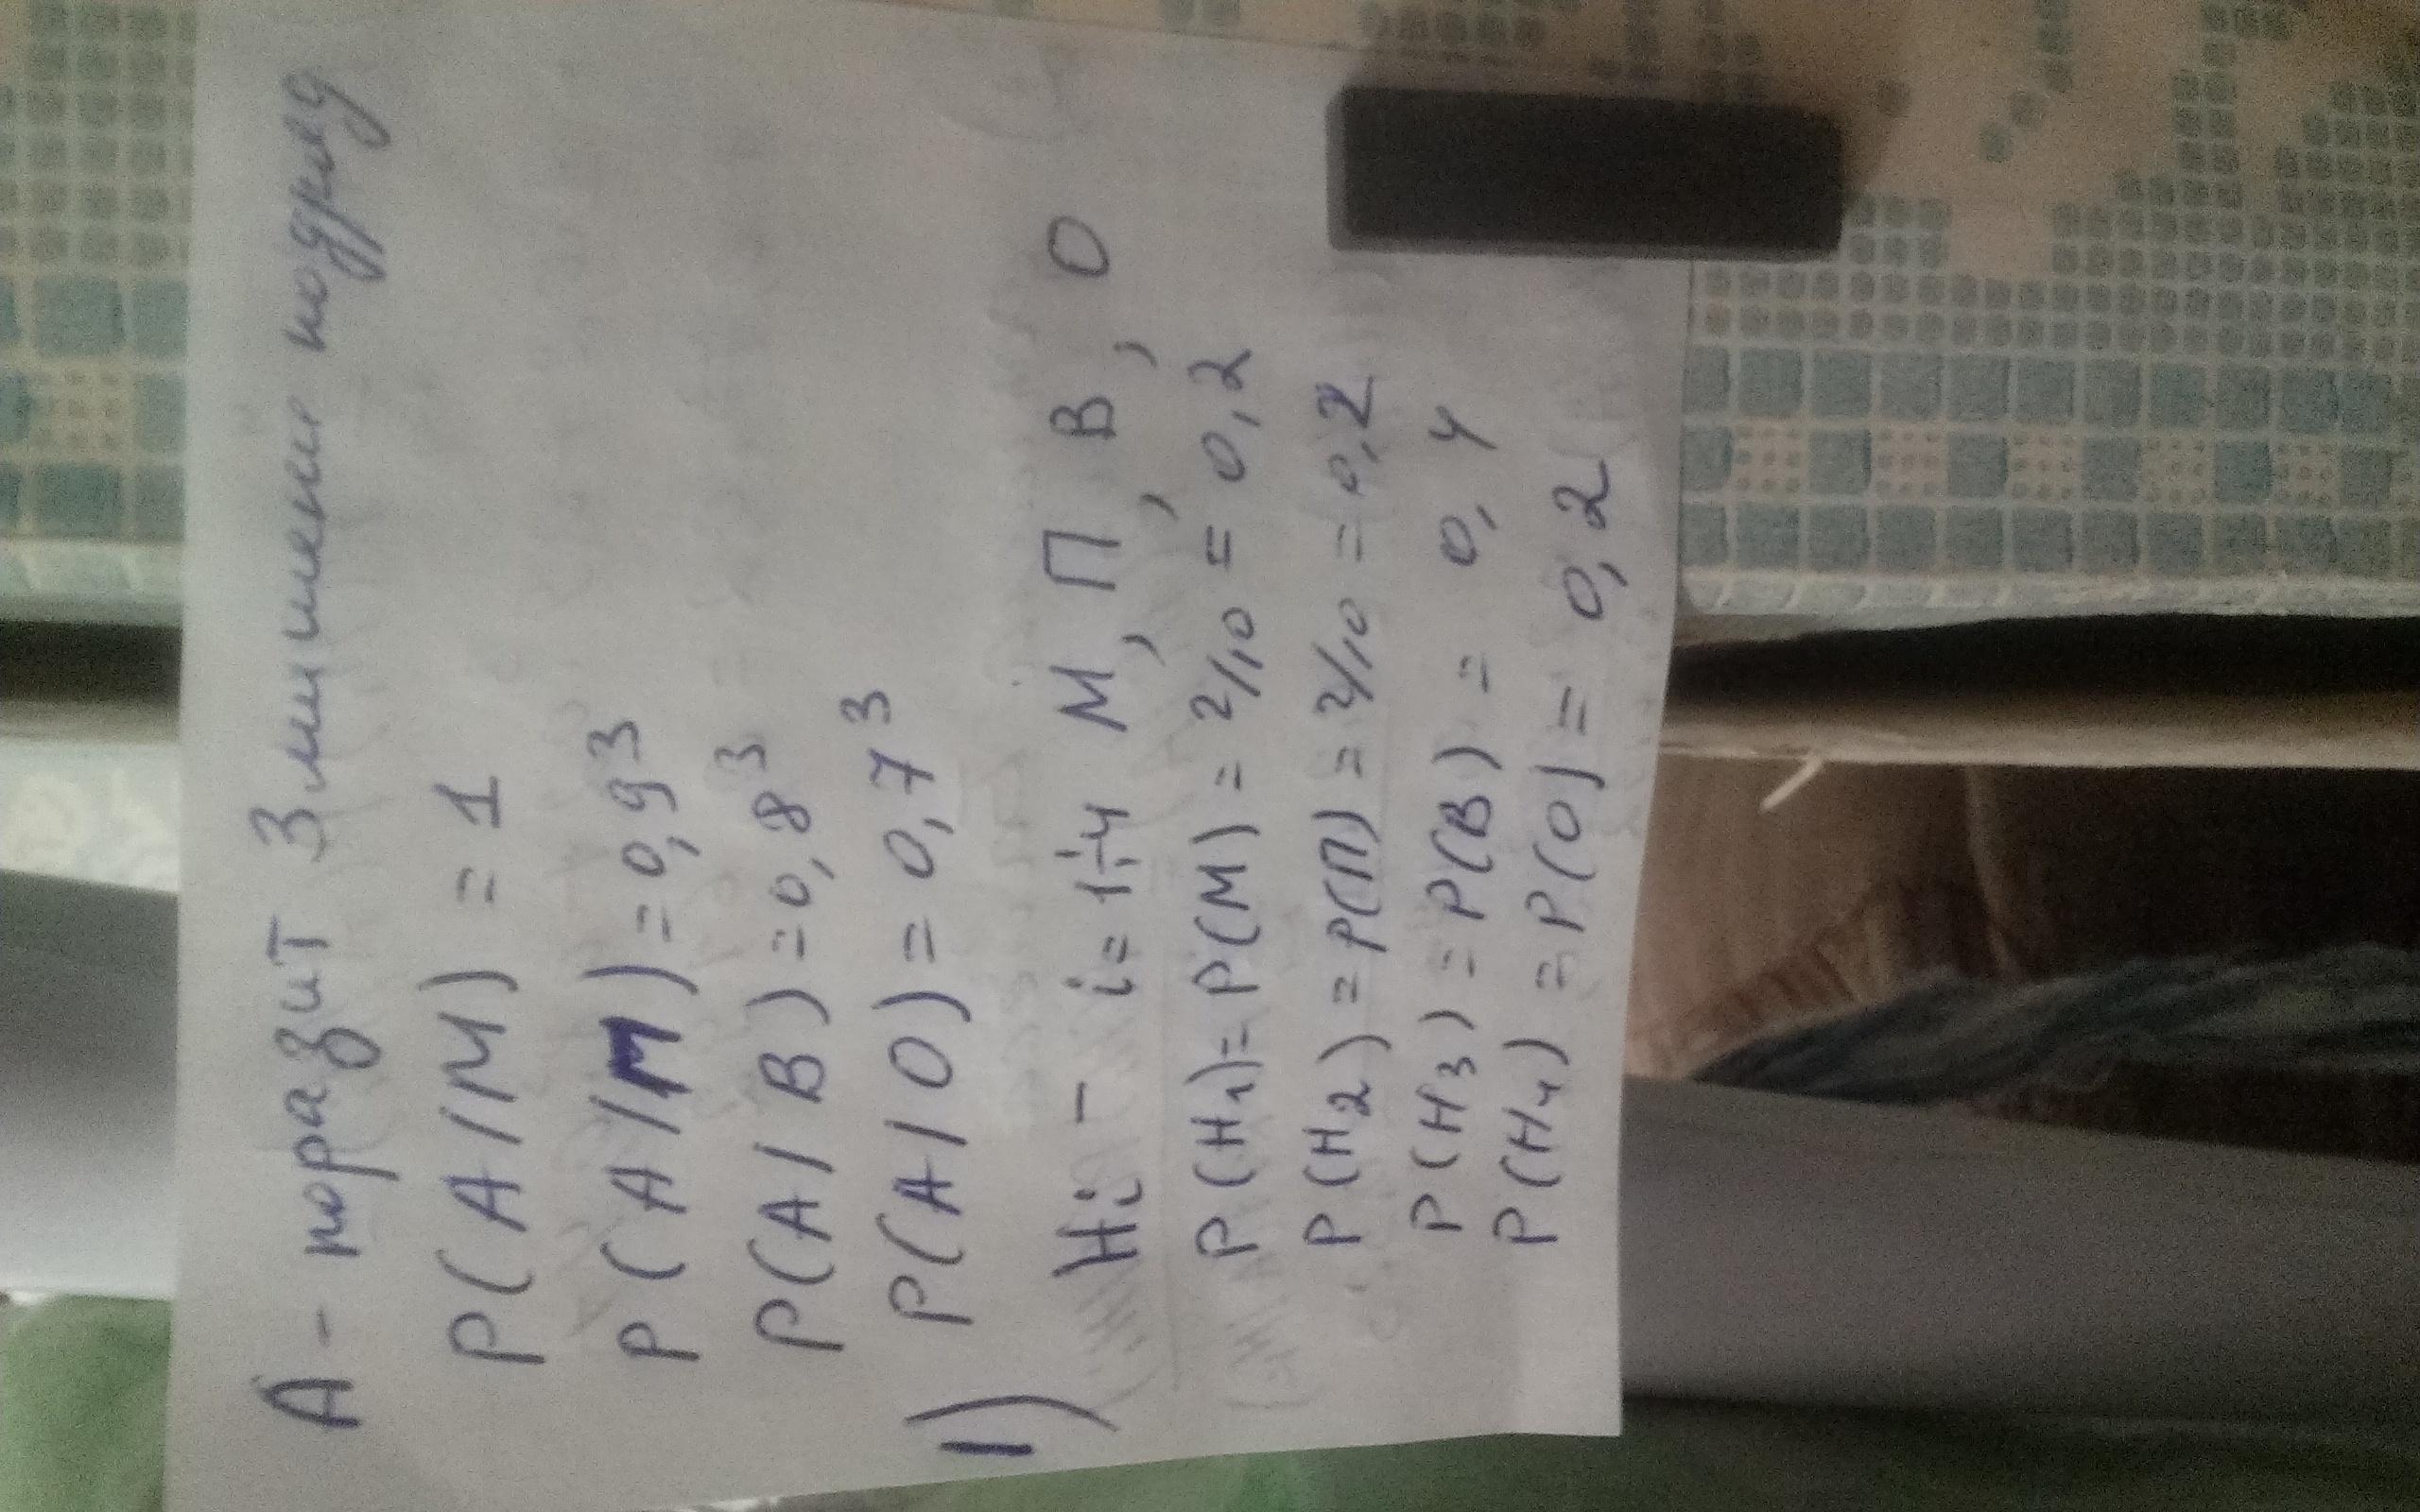 А - поразит 3 мишени подряд
P(A/M) = 1
P(A/П) = 0,9³
P(A/B) = 0,8³
P(A/O) = 0,7³
1)
Hi - i = 1÷4 М, П, В, О
P(H₁) = P(M) = 2/10 = 0,2
P(H₂) = P(П) = 2/10 = 0,2
P(H₃) = P(B) = 0,4
P(H₄) = P(O) = 0,2